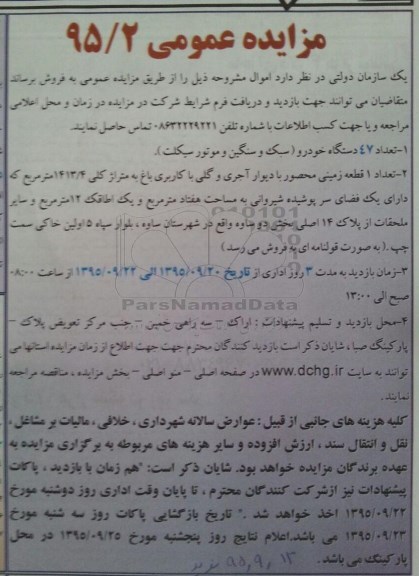 مزایده عمومی ۹۵/۲
یک سازمان دولتی در نظر دارد اموال مشروحه ذیل را از طریق مزایده عمومی به فروش برساند
متقاضیان می توانند جهت بازدید و دریافت فرم شرایط شرکت در مزایده در زمان و محل اعلامی
مراجعه و یا جهت کسب اطلاعات با شماره تلفن ۰۸۶۳۲۲۲۹۲۲۱ تماس حاصل نمایند.
۱-تعداد ۴۷ دستگاه خودرو (سبک و سنگین و موتور سیکلت).
۲-تعداد ۱ قطعه زمینی محصور با دیوار آجری و گلی با کاربری باغ به متراژ کلی ۱۴۱۳/۴مترمربع که
دارای یک فضای سر پوشیده شیروانی به مساحت هفتاد مترمربع و یک اطاقک ۱۲مترمربع و سایر
ملحقات از پلاک ۱۴ اصلی بخش دو ساوه واقع در شهرستان ساوه ، بلوار سپاه ۵ اولین خاکی سمت
چپ .( به صورت قولنامه ای به فروش می رسد )
۳-زمان بازدید به مدت ۳ روز اداری از تاریخ ۱۳۹۵/۰۹/۲۰ الی ۱۳۹۵/۰۹/۲۲ از ساعت ۰۸:۰۰
صبح الی ۱۳:۰۰
ParsNamadData
۴-محل بازدید و تسلیم پیشنهادات : اراک – سه راهی خمین – جنب مرکز تعویض پلاک –
پارکینگ صبا ، شایان ذکر است بازدید کنندگان محترم جهت اطلاع از زمان مزایده استانها می
توانند به سایت www.dchg.ir در صفحه اصلی – منو اصلی – بخش مزایده ، مناقصه مراجعه
نمایند.
کلیه هزینه های جانبی از قبیل : عوارض سالانه شهرداری ، خلافی ، مالیات بر مشاغل ،
نقل و انتقال سند ، ارزش افزوده و سایر هزینه های مربوطه به برگزاری مزایده به
عهده برندگان مزایده خواهد بود. شایان ذکر است: "هم زمان با بازدید ، پاکات
پیشنهادات نیز ازشرکت کنندگان محترم ، تا پایان وقت اداری روز دوشنبه مورخ
۱۳۹۵/۰۹/۲۲ اخذ خواهد شد ." تاریخ بازگشایی پاکات روز سه شنبه مورخ
۱۳۹۵/۰۹/۲۳ می باشد.اعلام نتایج روز پنجشنبه مورخ ۱۳۹۵/۰۹/۲۵ در محل
پارکینگ می باشد .
۹۵,۹,۱۳